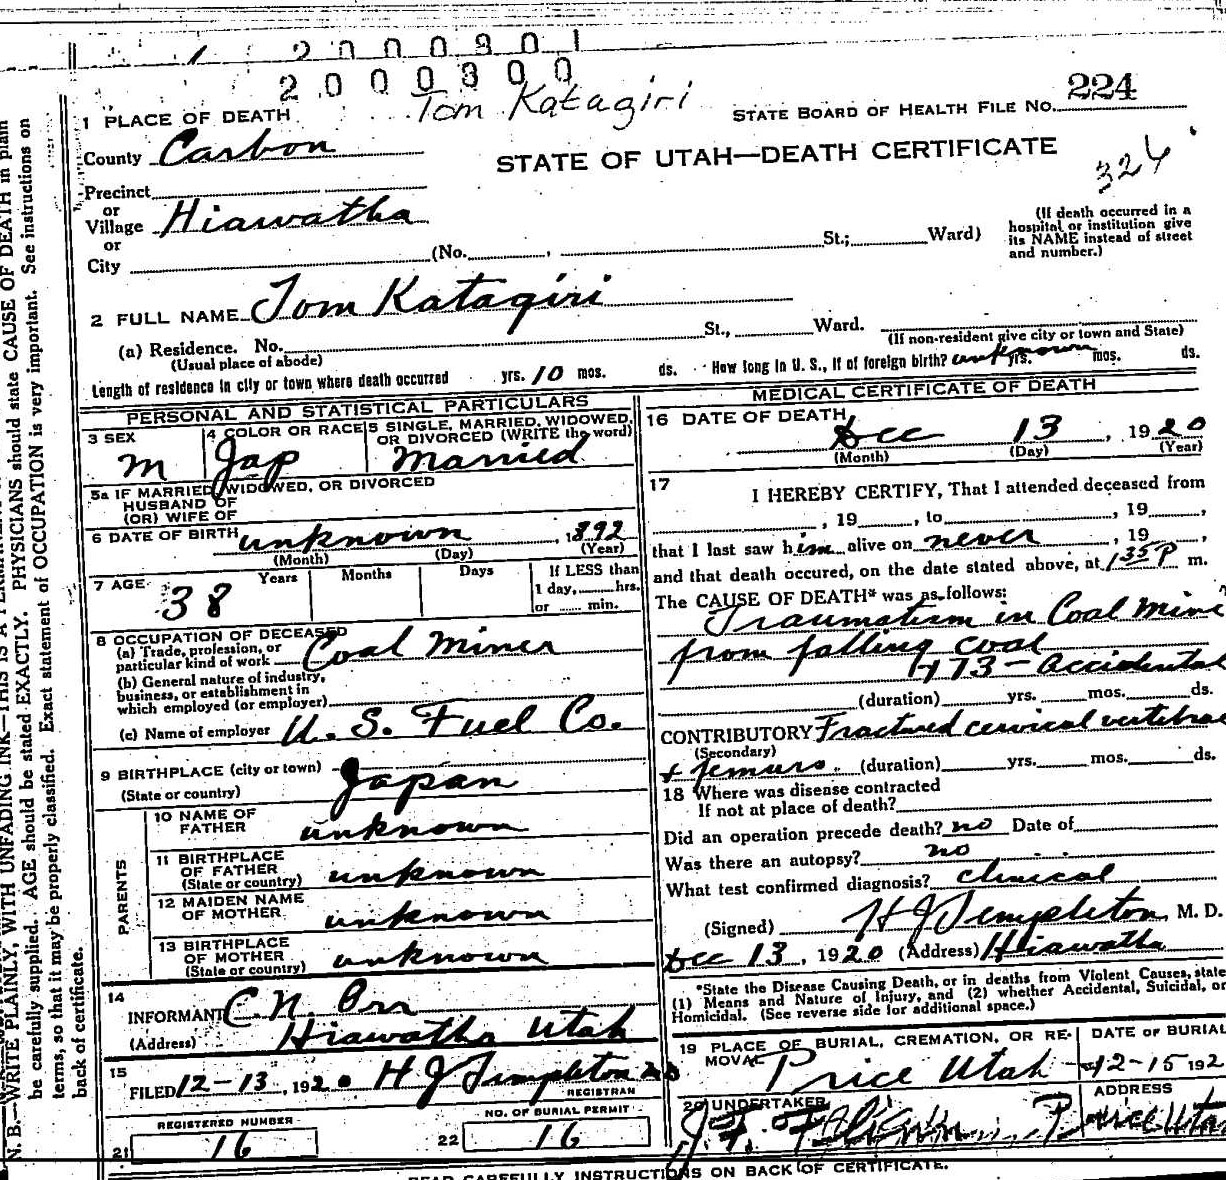 2000301
2000300
Tom Katagiri
STATE BOARD OF HEALTH FILE NO. 224
1 PLACE OF DEATH
County Carbon
STATE OF UTAH—DEATH CERTIFICATE
324
Precinct
or
Village Hiawatha
or
City (No. , St.; Ward)
(If death occurred in a
hospital or institution give
its NAME instead of street
and number.)
2 FULL NAME Tom Katagiri
(a) Residence. No. St., Ward.
(Usual place of abode) (If non-resident give city or town and State)
Length of residence in city or town where death occurred yrs. 10 mos. ds. How long in U. S., if of foreign birth? unknown yrs. mos. ds.
PERSONAL AND STATISTICAL PARTICULARS
3 SEX
m
4 COLOR OR RACE
Jap
5 SINGLE, MARRIED, WIDOWED,
OR DIVORCED (WRITE the word)
Married
5a IF MARRIED, WIDOWED, OR DIVORCED
HUSBAND OF
(OR) WIFE OF
6 DATE OF BIRTH unknown , 1892
(Month) (Day) (Year)
7 AGE Years Months Days If LESS than
1 day, hrs.
or min.
38
8 OCCUPATION OF DECEASED
(a) Trade, profession, or
particular kind of work Coal Miner
(b) General nature of industry,
business, or establishment in
which employed (or employer)
(c) Name of employer U. S. Fuel Co.
9 BIRTHPLACE (city or town)
(State or country) Japan
PARENTS
10 NAME OF
FATHER unknown
11 BIRTHPLACE
OF FATHER
(State or country) unknown
12 MAIDEN NAME
OF MOTHER unknown
13 BIRTHPLACE
OF MOTHER
(State or country) unknown
14
INFORMANT C. N. Orr
(Address) Hiawatha Utah
15
FILED 12-13, 1920 H J Templeton MD
REGISTRAR
REGISTERED NUMBER
21 16
NO. OF BURIAL PERMIT
22 16
MEDICAL CERTIFICATE OF DEATH
16 DATE OF DEATH
Dec 13, 1920
(Month) (Day) (Year)
17
I HEREBY CERTIFY, That I attended deceased from
, 19 , to , 19 ,
that I last saw him alive on never , 19 ,
and that death occured, on the date stated above, at 1 35 P m.
The CAUSE OF DEATH* was as follows:
Traumatism in Coal Mine
from falling coal
173 - Accidental
(duration) yrs. mos. ds.
CONTRIBUTORY Fractured cervical vertebrae
(Secondary)
+ femurs. (duration) yrs. mos. ds.
18 Where was disease contracted
If not at place of death?
Did an operation precede death? no Date of
Was there an autopsy? no
What test confirmed diagnosis? clinical
(Signed) H J Templeton, M. D.
Dec 13, 1920 (Address) Hiawatha
*State the Disease Causing Death, or in deaths from Violent Causes, state
(1) Means and Nature of Injury, and (2) whether Accidental, Suicidal, or
Homicidal. (See reverse side for additional space.)
19 PLACE OF BURIAL, CREMATION, OR RE-
MOVAL Price Utah
DATE OF BURIAL
12-15 192
20 UNDERTAKER
J. F.
ADDRESS
Price Utah
READ CAREFULLY INSTRUCTIONS ON BACK OF CERTIFICATE.
N. B.—WRITE PLAINLY, WITH UNFADING INK—THIS IS A
be carefully supplied. AGE should be stated EXACTLY. PHYSICIANS should state CAUSE OF DEATH in plain
terms, so that it may be properly classified. Exact statement of OCCUPATION is very important. See instructions on
back of certificate.